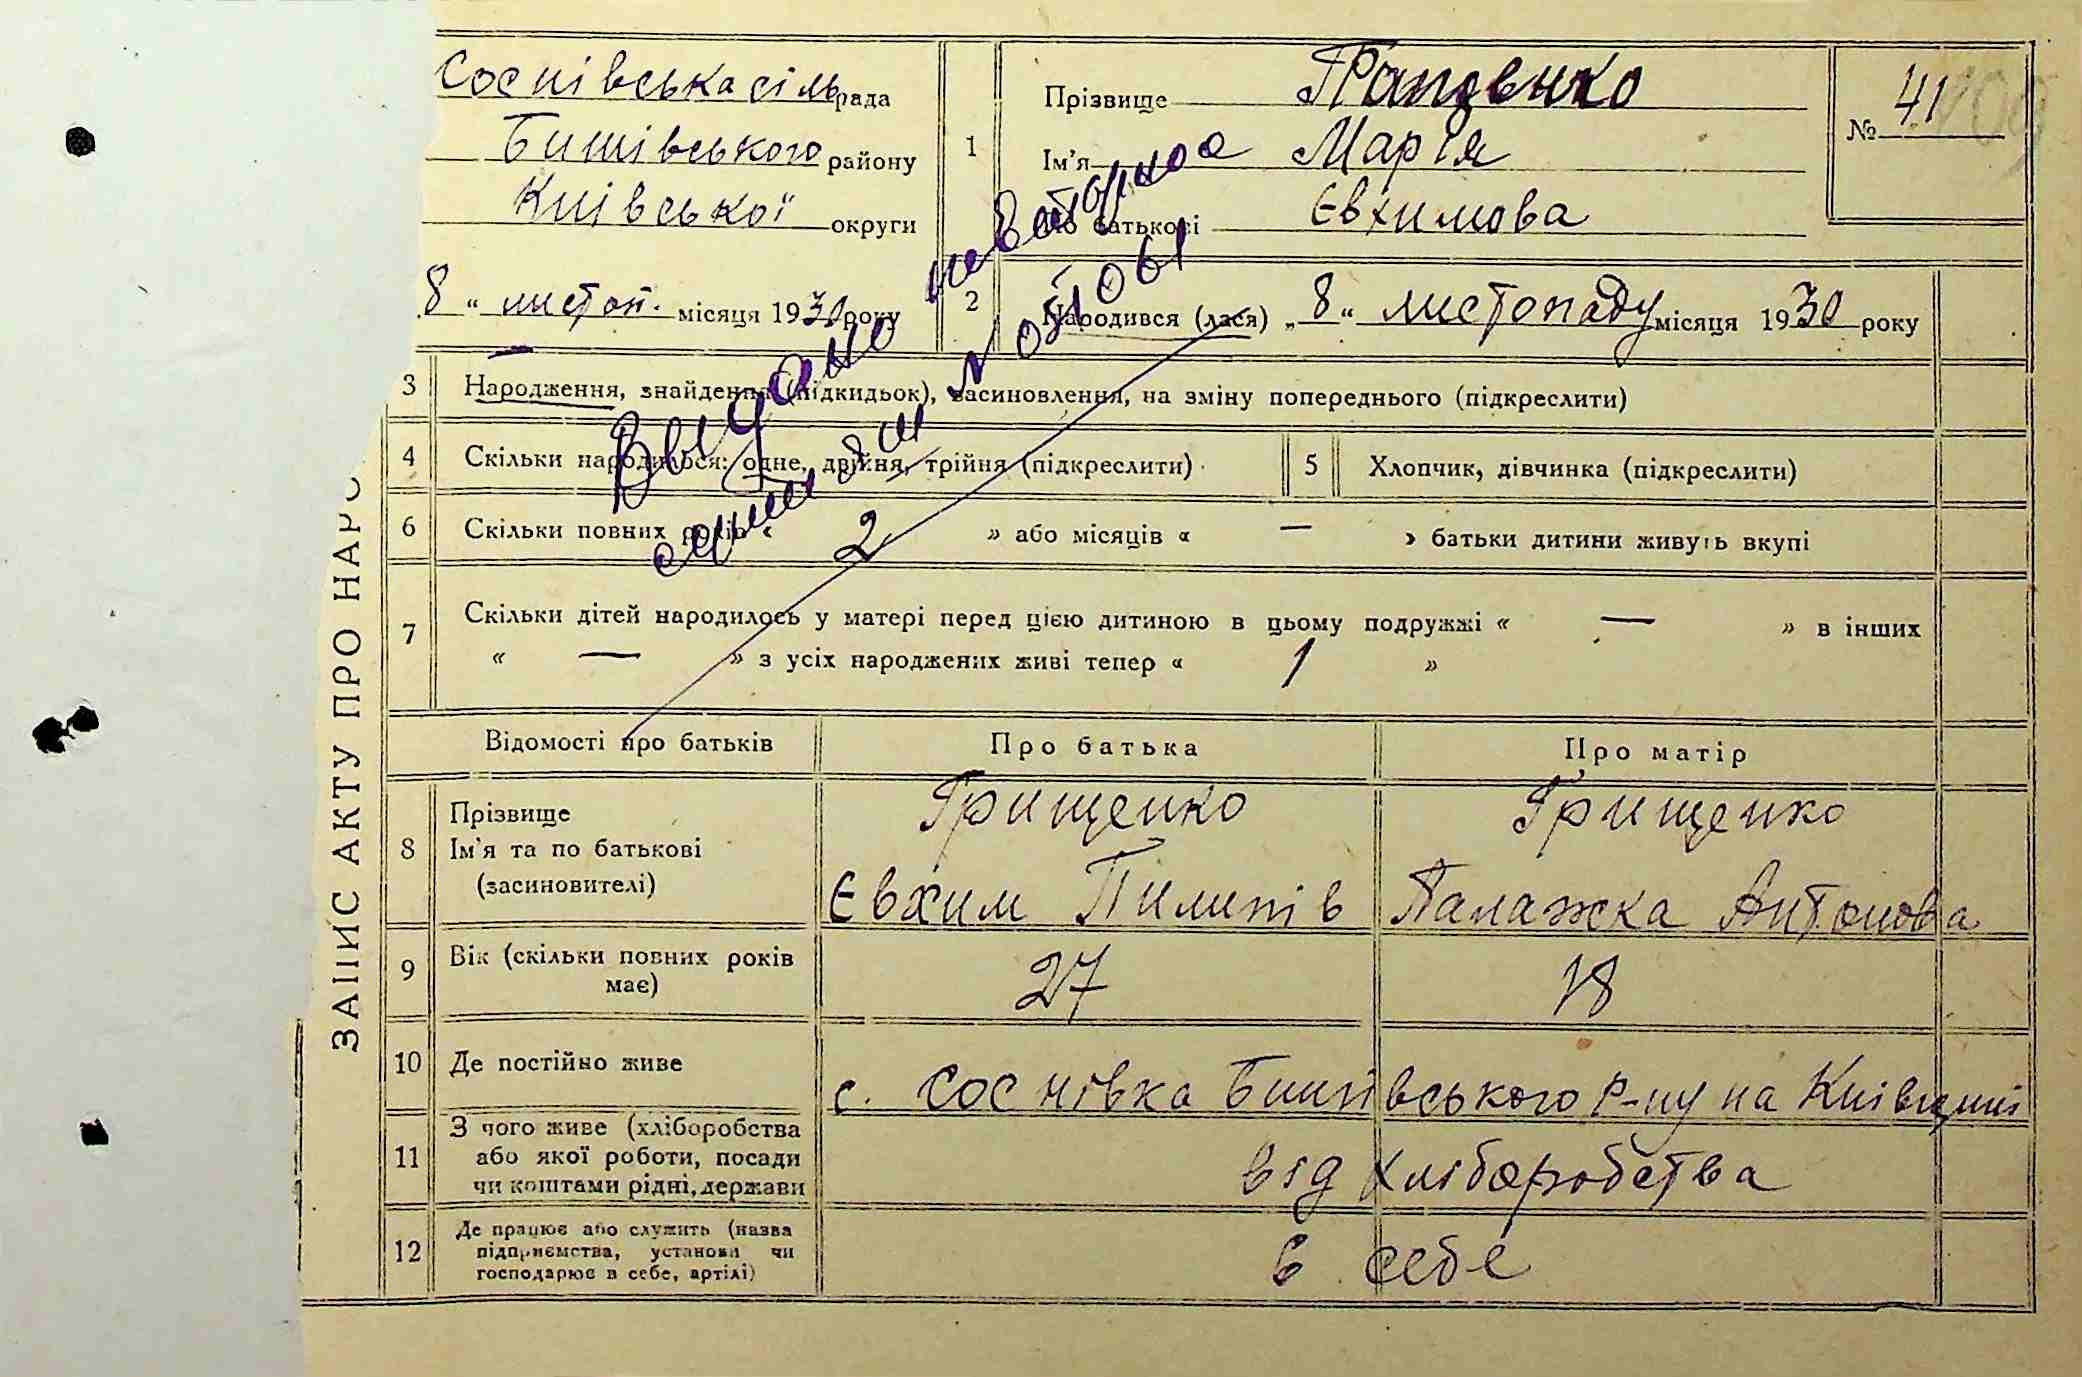 Соснівська сільрада
Бишівського району
Київської округи
8 " листоп. місяця 1930 року
1
Прізвище
Ім'я Марія
По батькові Євхимова
№ 41
2
Народився (лася) „ 8 " листопаду місяця 1930 року
3 Народження, знайдення (підкидьок), засиновлення, на зміну попереднього (підкреслити)
4 Скільки народилося: одне, двійня, трійня (підкреслити)
5 Хлопчик, дівчинка (підкреслити)
6 Скільки повних років « 2 » або місяців « — » батьки дитини живуть вкупі
7 Скільки дітей народилось у матері перед цією дитиною в цьому подружжі « — » в інших
« — » з усіх народжених живі тепер « 1 »
Выдано повторное
N 051061
ЗАПИС АКТУ ПРО НАРО
Відомості про батьків Про батька Про матір
8 Прізвище
Ім'я та по батькові
(засиновителі)
Грищенко Грищенко
Євхим Пилипів Палажка Антонова
9 Вік (скільки повних років
має)
27 18
10 Де постійно живе
с. Соснівка Бишівського р-ну на Київщині
11 З чого живе (хліборобства
або якої роботи, посади
чи коштами рідні, держави
від хліборобства
12 Де працює або служить (назва
підприємства, установи чи
господарює в себе, артілі)
в себе